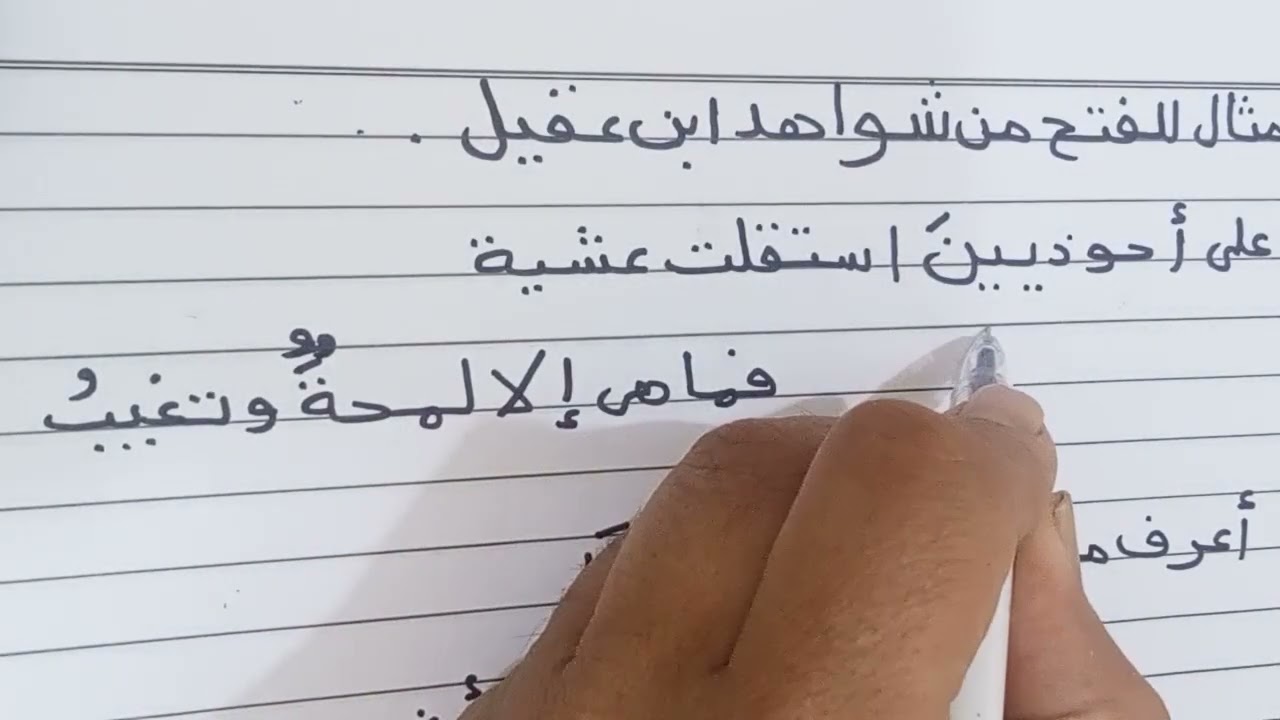 مثال للفتح من شواهد ابن عقيل . .
على أحوذيينَ استقلت عشية
فما هى إلا لمحةٌ وتغيبُ
أعرف